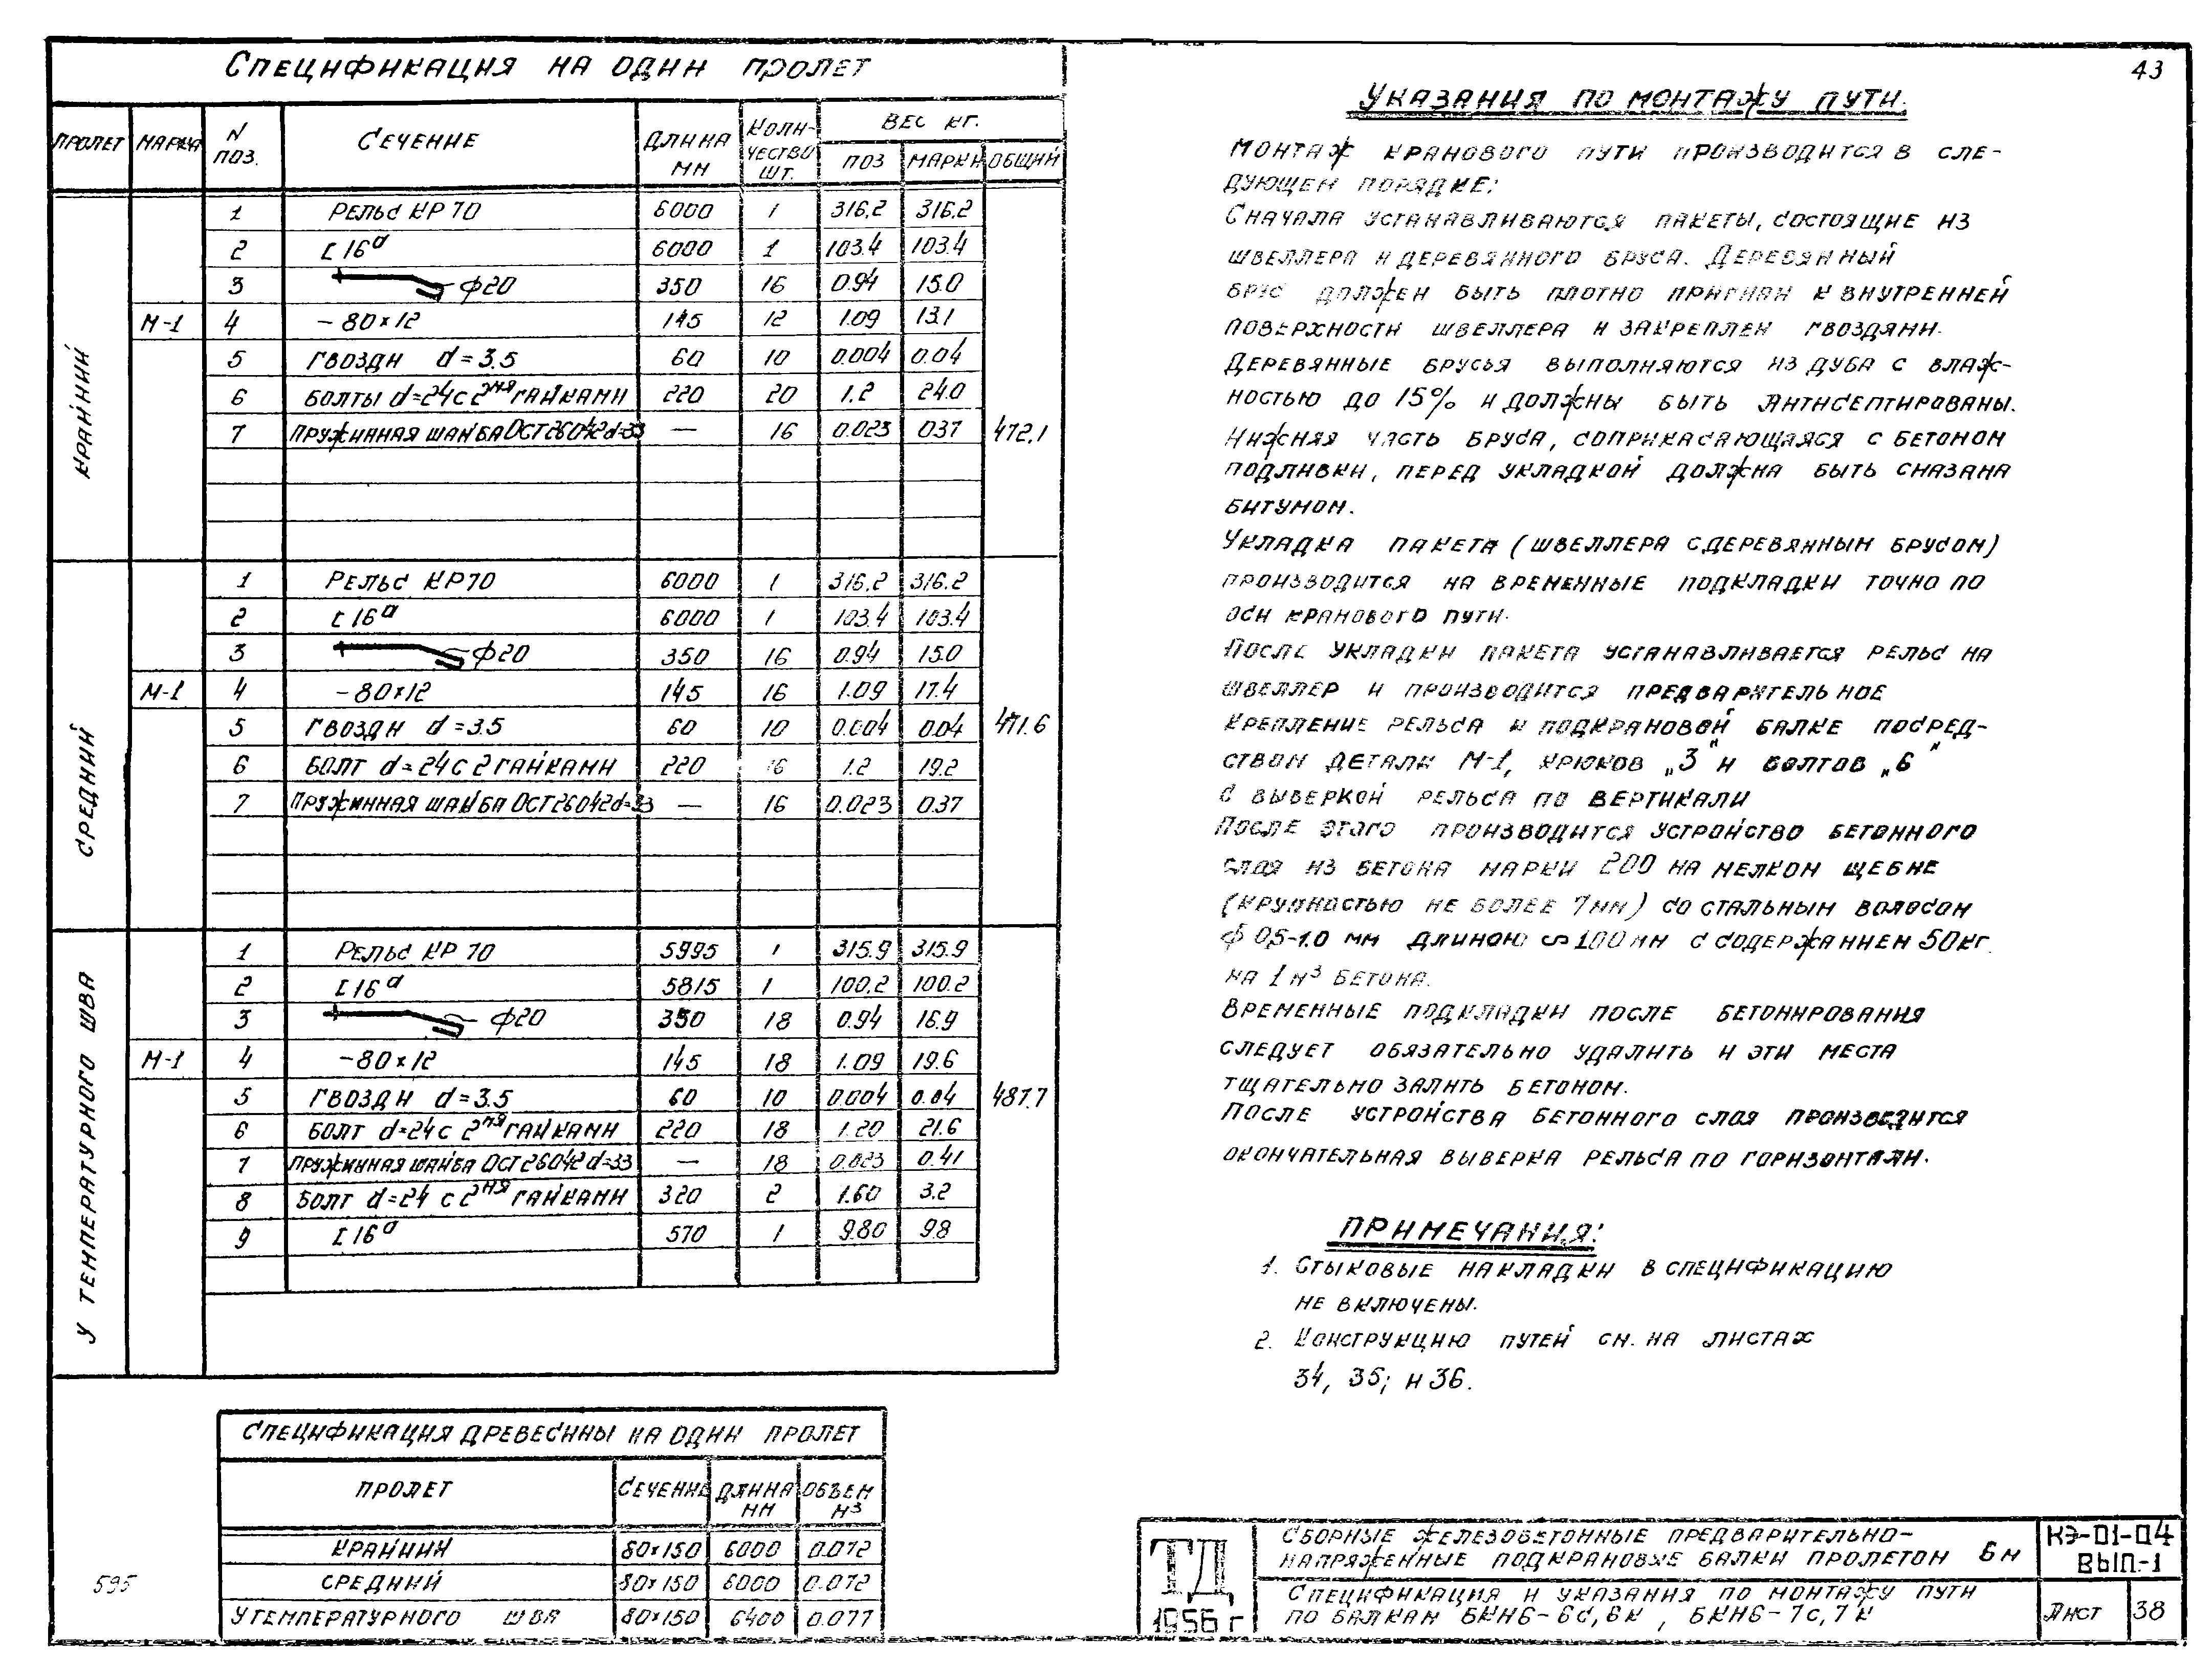 43
Спецификация на один пролет
Пролет Марка N поз. Сечение Длина мм Количество шт. Вес кг.
поз марки общий
Крайний
1 Рельс КР 70 6000 1 316.2 316.2
2 [ 16а 6000 1 103.4 103.4
3 ф20 350 16 0.94 15.0
М-1 4 – 80×12 145 12 1.09 13.1
5 Гвозди d=3.5 60 10 0.004 0.04
6 Болты d=24 с 2мя гайками 220 20 1.2 24.0
7 Пружинная шайба ОСТ 26042 d=33 — 16 0.023 037 472.1
Средний
1 Рельс КР70 6000 1 316.2 316.2
2 [ 16а 6000 1 103.4 103.4
3 ф20 350 16 0.94 15.0
М-1 4 – 80×12 145 16 1.09 17.4
5 Гвозди d=3.5 60 10 0.004 0.04
6 Болт d=24 с 2 гайками 220 16 1.2 19.2
7 Пружинная шайба ОСТ 26042 d=33 — 16 0.023 0.37
471.6
У температурного шва
1 Рельс КР 70 5995 1 315.9 315.9
2 [ 16а 5815 1 100.2 100.2
3 ф20 350 18 0.94 16.9
М-1 4 – 80×12 145 18 1.09 19.6
5 Гвозди d=3.5 60 10 0.004 0.04 487.7
6 Болт d=24 с 2мя гайками 220 18 1.20 21.6
7 Пружинная шайба ОСТ 26042 d=33 — 18 0.023 0.41
8 Болт d=24 с 2мя гайками 320 2 1.60 3.2
9 [ 16а 570 1 9.80 9.8
Спецификация древесины на один пролет
Пролет Сечение Длина мм Объем м3
Крайний 80×150 6000 0.072
Средний 80×150 6000 0.072
У температурного шва 80×150 6400 0.077
595
Указания по монтажу пути.
Монтаж кранового пути производится в сле-
дующем порядке:
Сначала устанавливаются пакеты, состоящие из
швеллера и деревянного бруса. Деревянный
брус должен быть плотно пригнан к внутренней
поверхности швеллера и закреплен гвоздями.
Деревянные брусья выполняются из дуба с влаж-
ностью до 15% и должны быть антисептированы.
Нижняя часть бруса, соприкасающаяся с бетоном
подливки, перед укладкой должна быть смазана
битумом.
Укладка пакета (швеллера с деревянным брусом)
производится на временные подкладки точно по
оси кранового пути.
После укладки пакета устанавливается рельс на
швеллер и производится предварительное
крепление рельса к подкрановой балке посред-
ством детали М-1, крюков „3" и болтов „6"
с выверкой рельса по вертикали
После этого производится устройство бетонного
слоя из бетона марки 200 на мелком щебне
(крупностью не более 7мм) со стальным волосом
ф 0,5-1.0 мм длиною ∽ 100 мм с содержанием 50кг.
на 1 м3 бетона.
Временные подкладки после бетонирования
следует обязательно удалить и эти места
тщательно залить бетоном.
После устройства бетонного слоя производится
окончательная выверка рельса по горизонтали.
Примечания:
1. Стыковые накладки в спецификацию
не включены.
2. Конструкцию путей см. на листах
34, 35; и 36.
ТД
1956 г
Сборные железобетонные предварительно-
напряженные подкрановые балки пролетом 6м
КЭ-01-04
Вып-1
Спецификация и указания по монтажу пути
по балкам БКН6-6с,6к , БКН6-7с,7к
Лист 38